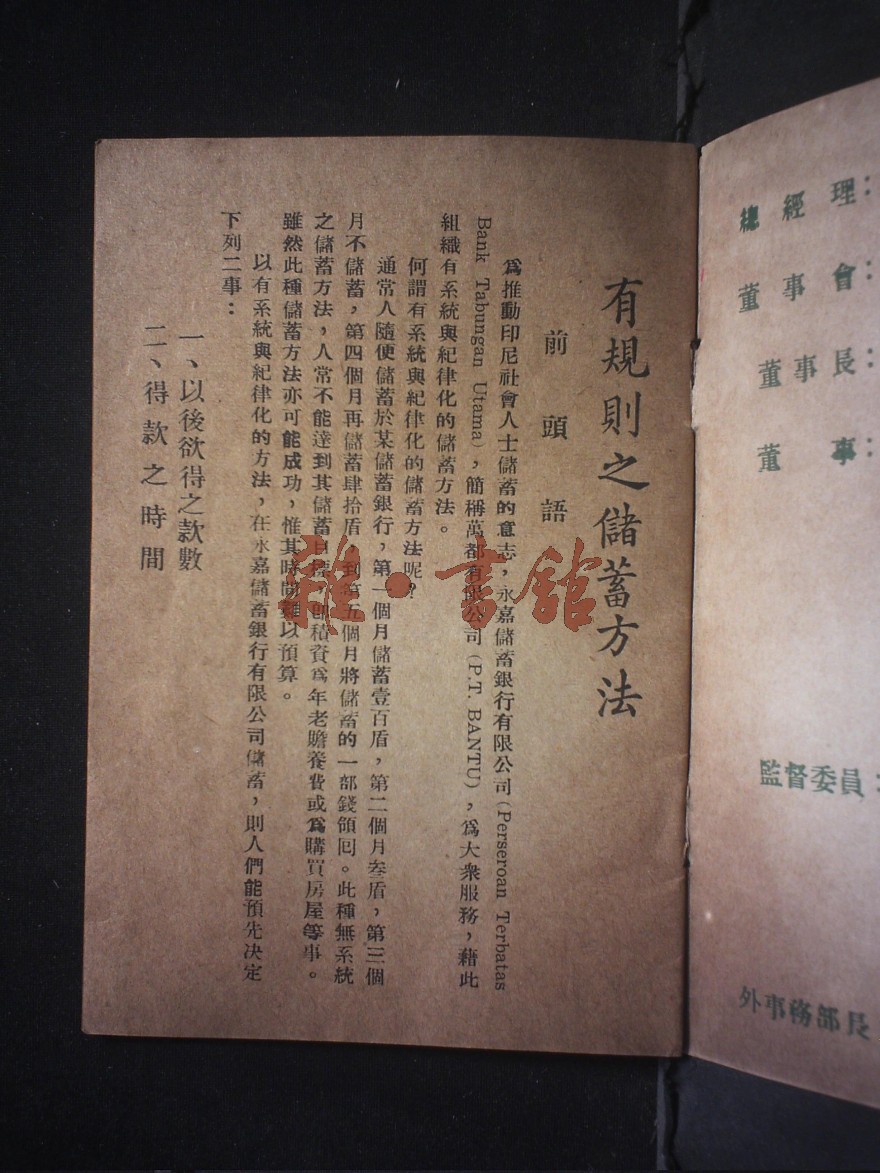 總經理：
董事會：
董事長：
董事：
監督委員：
外事務部長
有規則之儲蓄方法
前頭語
爲推動印尼社會人士儲蓄的意志，永嘉儲蓄銀行有限公司(Perseroan Terbatas
Bank Tabungan Utama)，簡稱萬都有限公司(P.T. BANTU)，爲大衆服務，藉此
組織有系統與紀律化的儲蓄方法。
何謂有系統與紀律化的儲蓄方法呢？
通常人隨便儲蓄於某儲蓄銀行，第一個月儲蓄壹百盾，第二個月叁盾，第三個
月不儲蓄，第四個月再儲蓄肆拾盾，到第五個月將儲蓄的一部錢領回。此種無系統
之儲蓄方法，人常不能達到其儲蓄目標，卽積資爲年老贍養費或爲購買房屋等事。
雖然此種儲蓄方法亦可能成功，惟其時間難以預算。
以有系統與紀律化的方法，在永嘉儲蓄銀行有限公司儲蓄，則人們能預先決定
下列二事：
一、以後欲得之款數
二、得款之時間
雜·書館